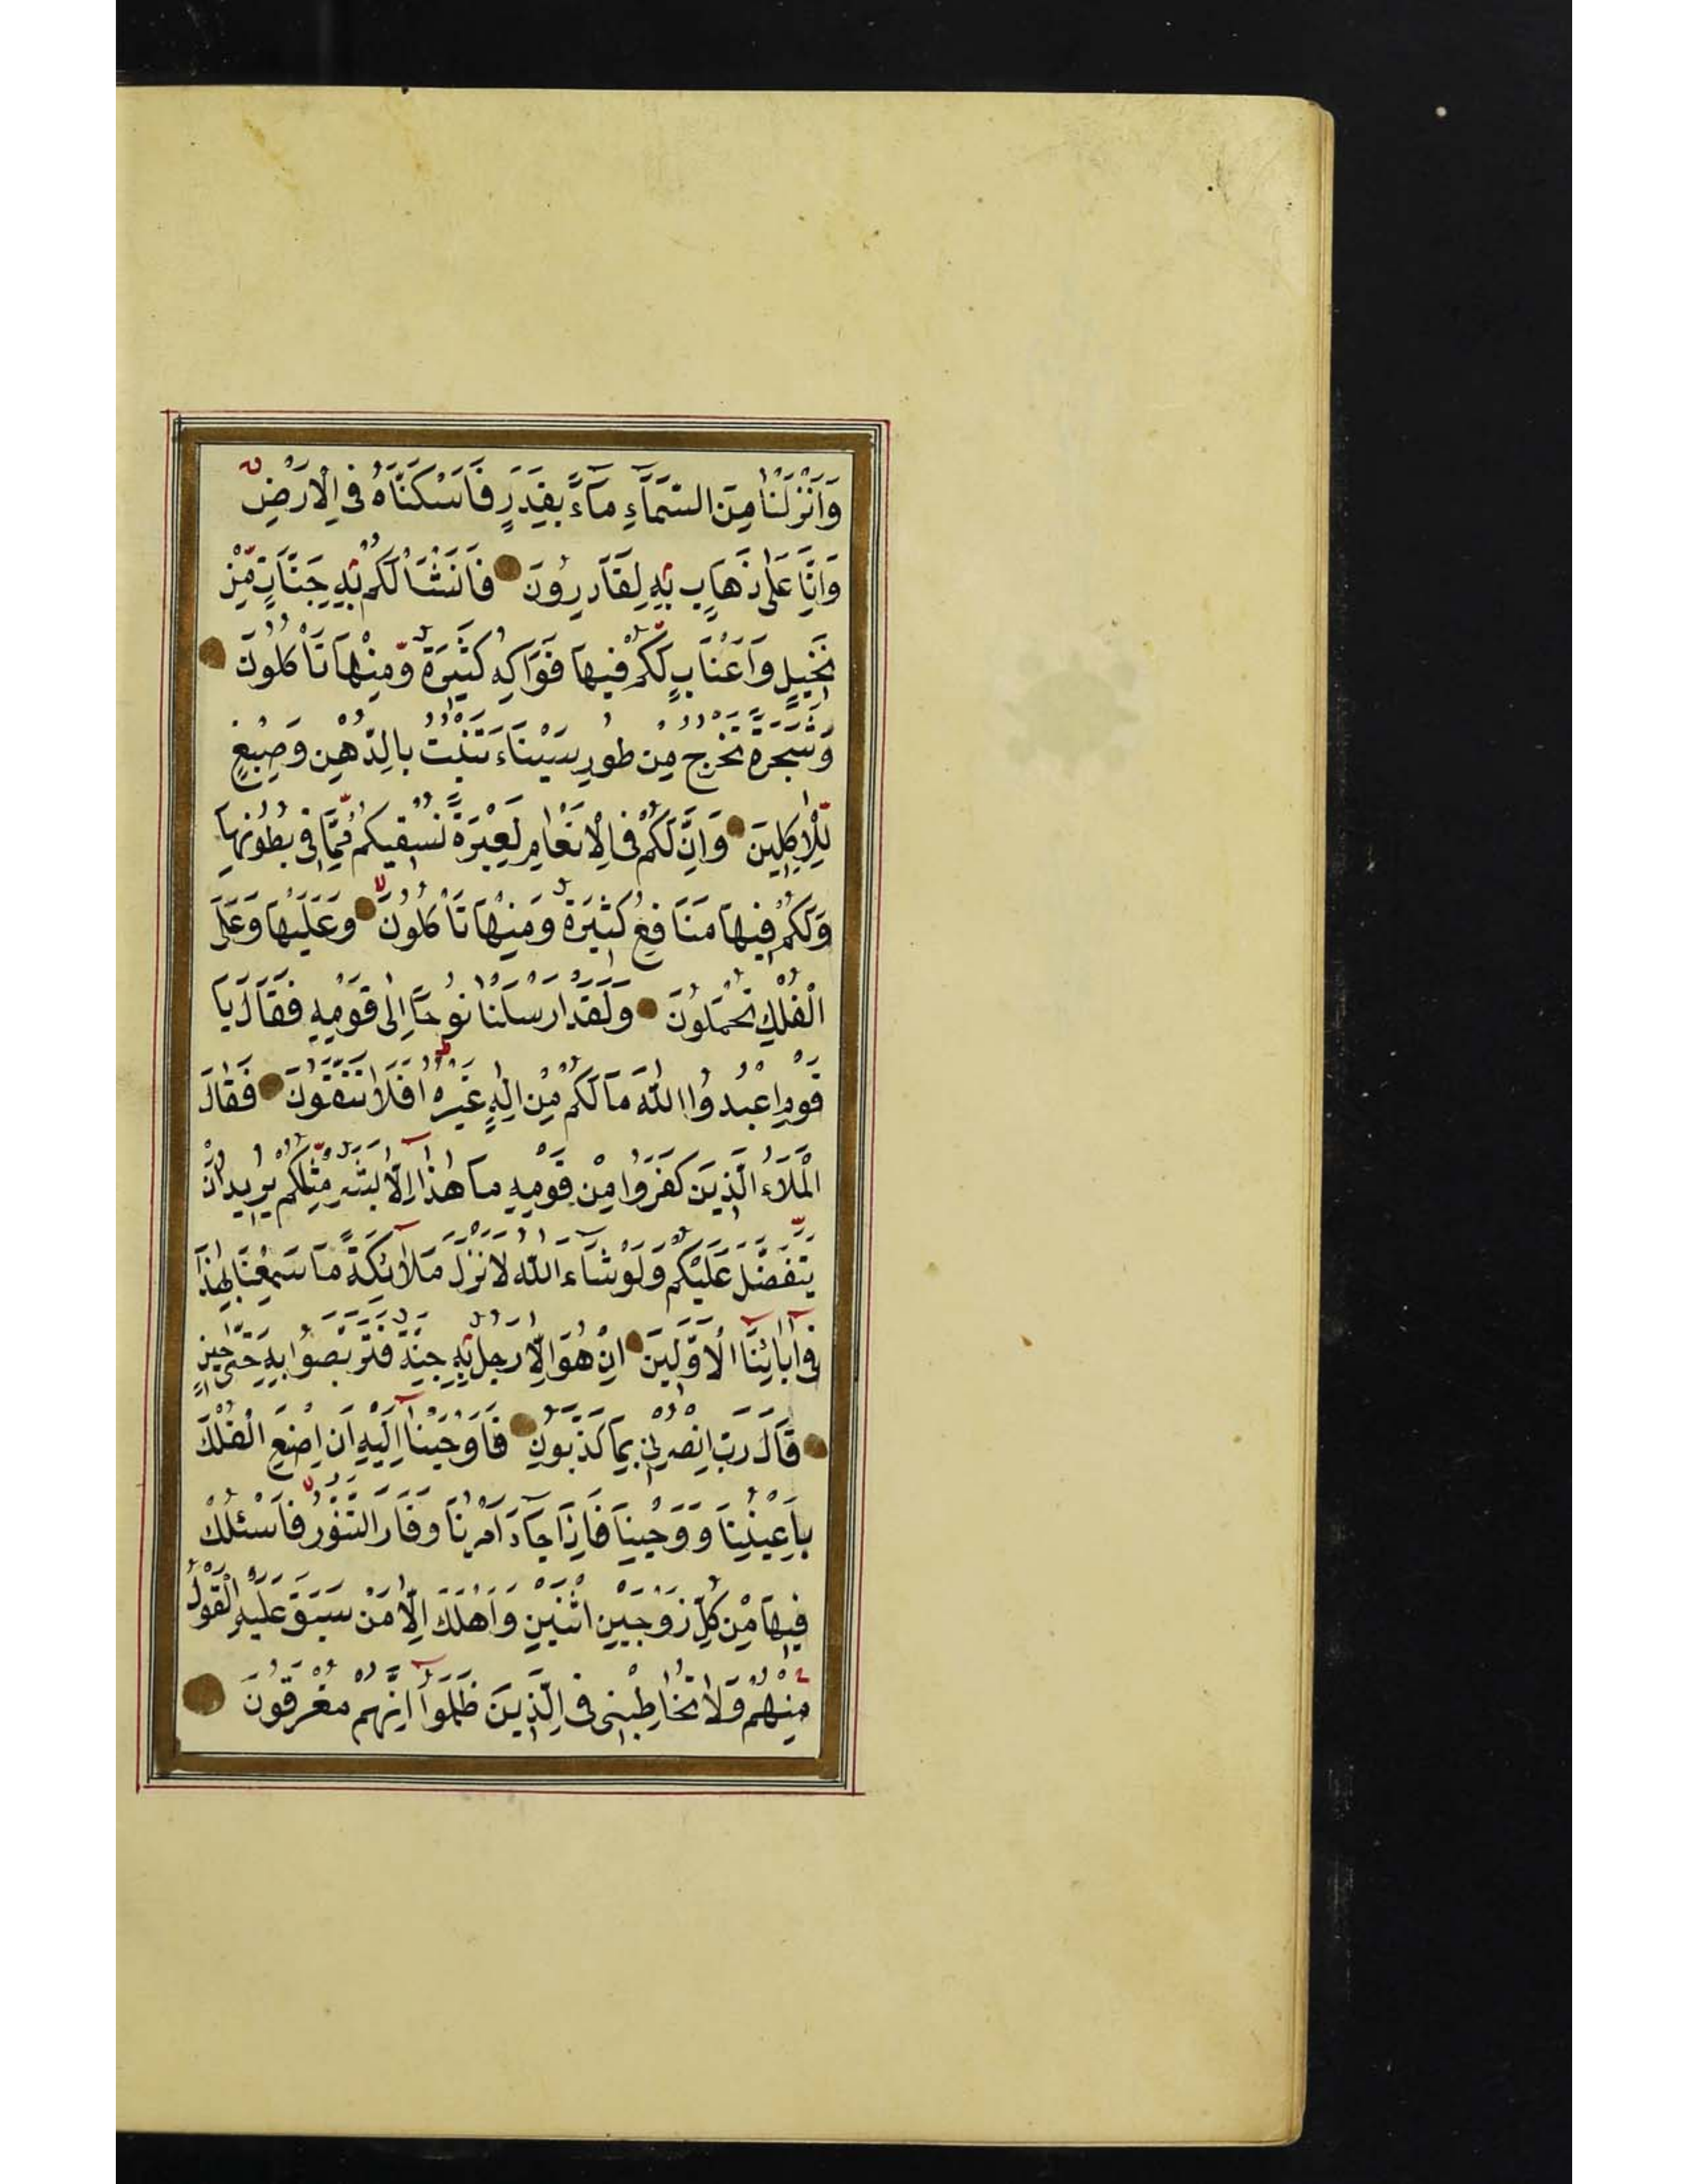 وَاَنْزَلْنَا مِنَ السَّمَآءِ مَآءً بِقَدَرٍ فَاَسْكَنَّاهُ فِى الْاَرْضِ
وَاِنَّا عَلٰى ذَهَابٍ بِهٖ لَقَادِرُونَ فَاَنْشَاْنَا لَكُمْ بِهٖ جَنَّاتٍ مِنْ
نَخٖيلٍ وَاَعْنَابٍ لَكُمْ فٖيهَا فَوَاكِهُ كَثٖيرَةٌ وَمِنْهَا تَاْكُلُونَ
وَشَجَرَةً تَخْرُجُ مِنْ طُورِ سَيْنَاءَ تَنْبُتُ بِالدُّهْنِ وَصِبْغٍ
لِلْاٰكِلٖينَ وَاِنَّ لَكُمْ فِى الْاَنْعَامِ لَعِبْرَةً نُسْقٖيكُمْ مِمَّا فٖى بُطُونِهَا
وَلَكُمْ فٖيهَا مَنَافِعُ كَثٖيرَةٌ وَمِنْهَا تَاْكُلُونَ وَعَلَيْهَا وَعَلَى
الْفُلْكِ تُحْمَلُونَ وَلَقَدْ اَرْسَلْنَا نُوحًا اِلٰى قَوْمِهٖ فَقَالَ يَا
قَوْمِ اعْبُدُوا اللّٰهَ مَا لَكُمْ مِنْ اِلٰهٍ غَيْرُهُ اَفَلَا تَتَّقُونَ فَقَالَ
الْمَلَاُ الَّذٖينَ كَفَرُوا مِنْ قَوْمِهٖ مَا هٰذَا اِلَّا بَشَرٌ مِثْلُكُمْ يُرٖيدُ اَنْ
يَتَفَضَّلَ عَلَيْكُمْ وَلَوْ شَآءَ اللّٰهُ لَاَنْزَلَ مَلٰٓائِكَةً مَا سَمِعْنَا بِهٰذَا
فٖى اٰبَآئِنَا الْاَوَّلٖينَ اِنْ هُوَ اِلَّا رَجُلٌ بِهٖ جِنَّةٌ فَتَرَبَّصُوا بِهٖ حَتّٰى حٖينٍ
قَالَ رَبِّ انْصُرْنٖى بِمَا كَذَّبُونِ فَاَوْحَيْنَآ اِلَيْهِ اَنِ اصْنَعِ الْفُلْكَ
بِاَعْيُنِنَا وَوَحْيِنَا فَاِذَا جَآءَ اَمْرُنَا وَفَارَ التَّنُّورُ فَاسْلُكْ
فٖيهَا مِنْ كُلٍّ زَوْجَيْنِ اثْنَيْنِ وَاَهْلَكَ اِلَّا مَنْ سَبَقَ عَلَيْهِ الْقَوْلُ
مِنْهُمْ وَلَا تُخَاطِبْنٖى فِى الَّذٖينَ ظَلَمُوٓا اِنَّهُمْ مُغْرَقُونَ